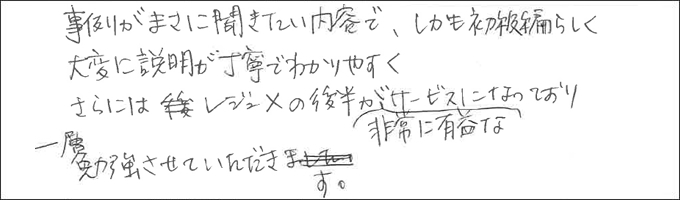 事例がまさに聞きたい内容で、しかも初級編らしく
大変に説明が丁寧でわかりやすく
さらには レジュメの後半がサービスになっており
非常に有益な
一層
勉強させていただきます。